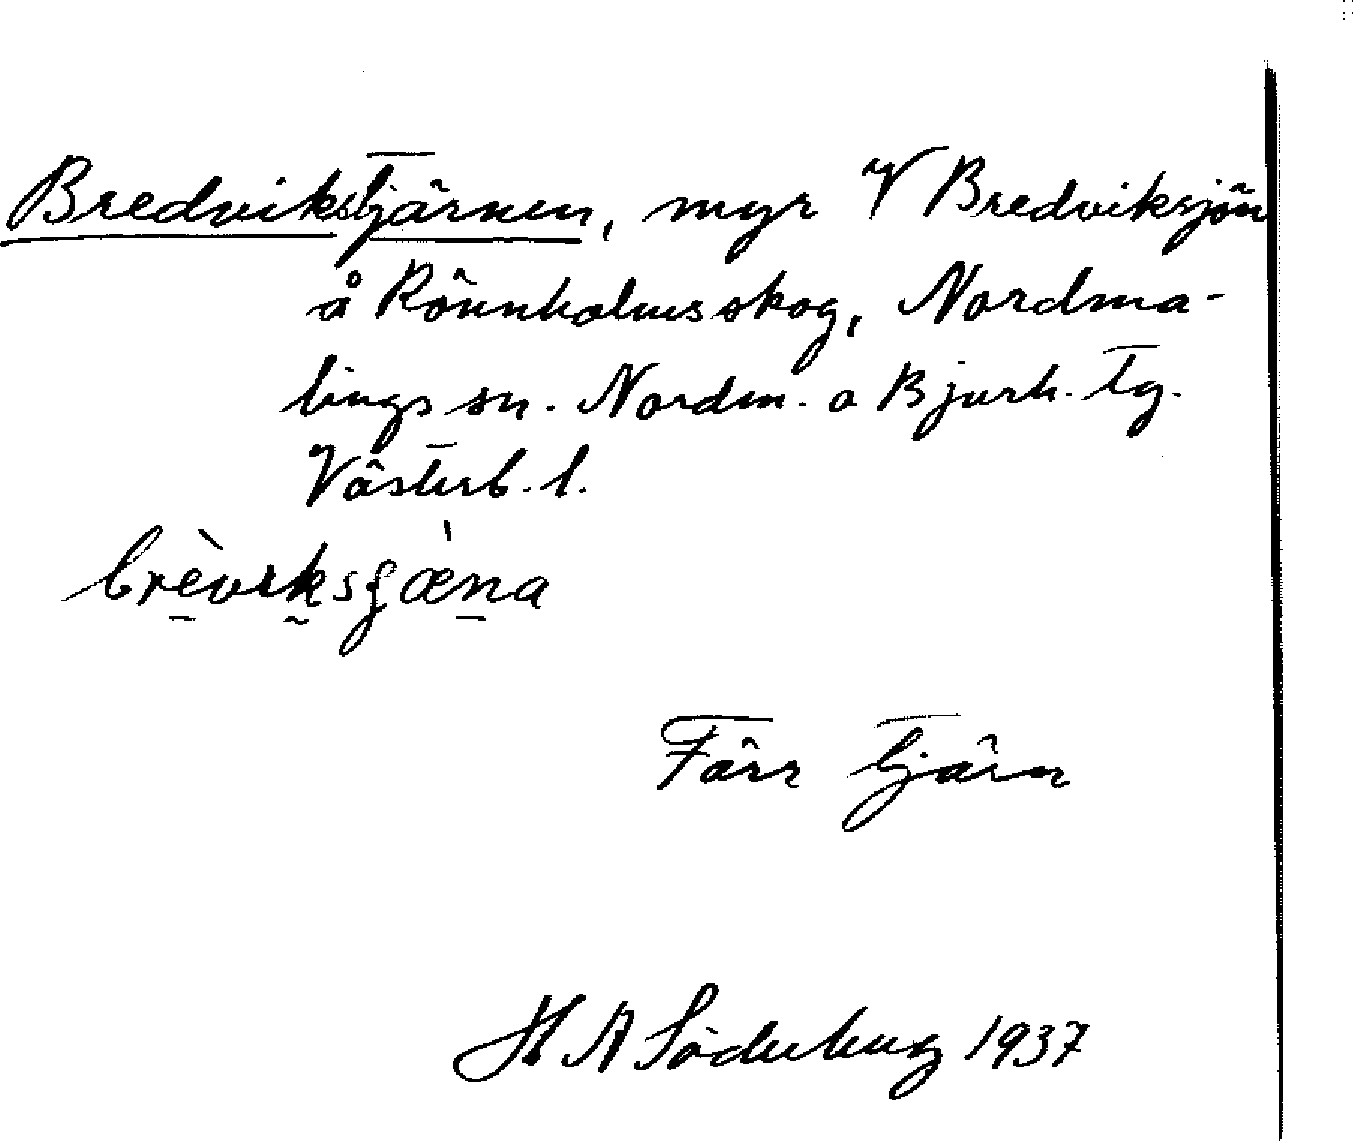 Bredvikstjärnen, myr V Bredviksjön
å Rönnholms skog, Nordma-
lings sn. Nordm. o Bjurh. tg.
Västerb. l.
Förr tjärn
H A Söderberg 1937